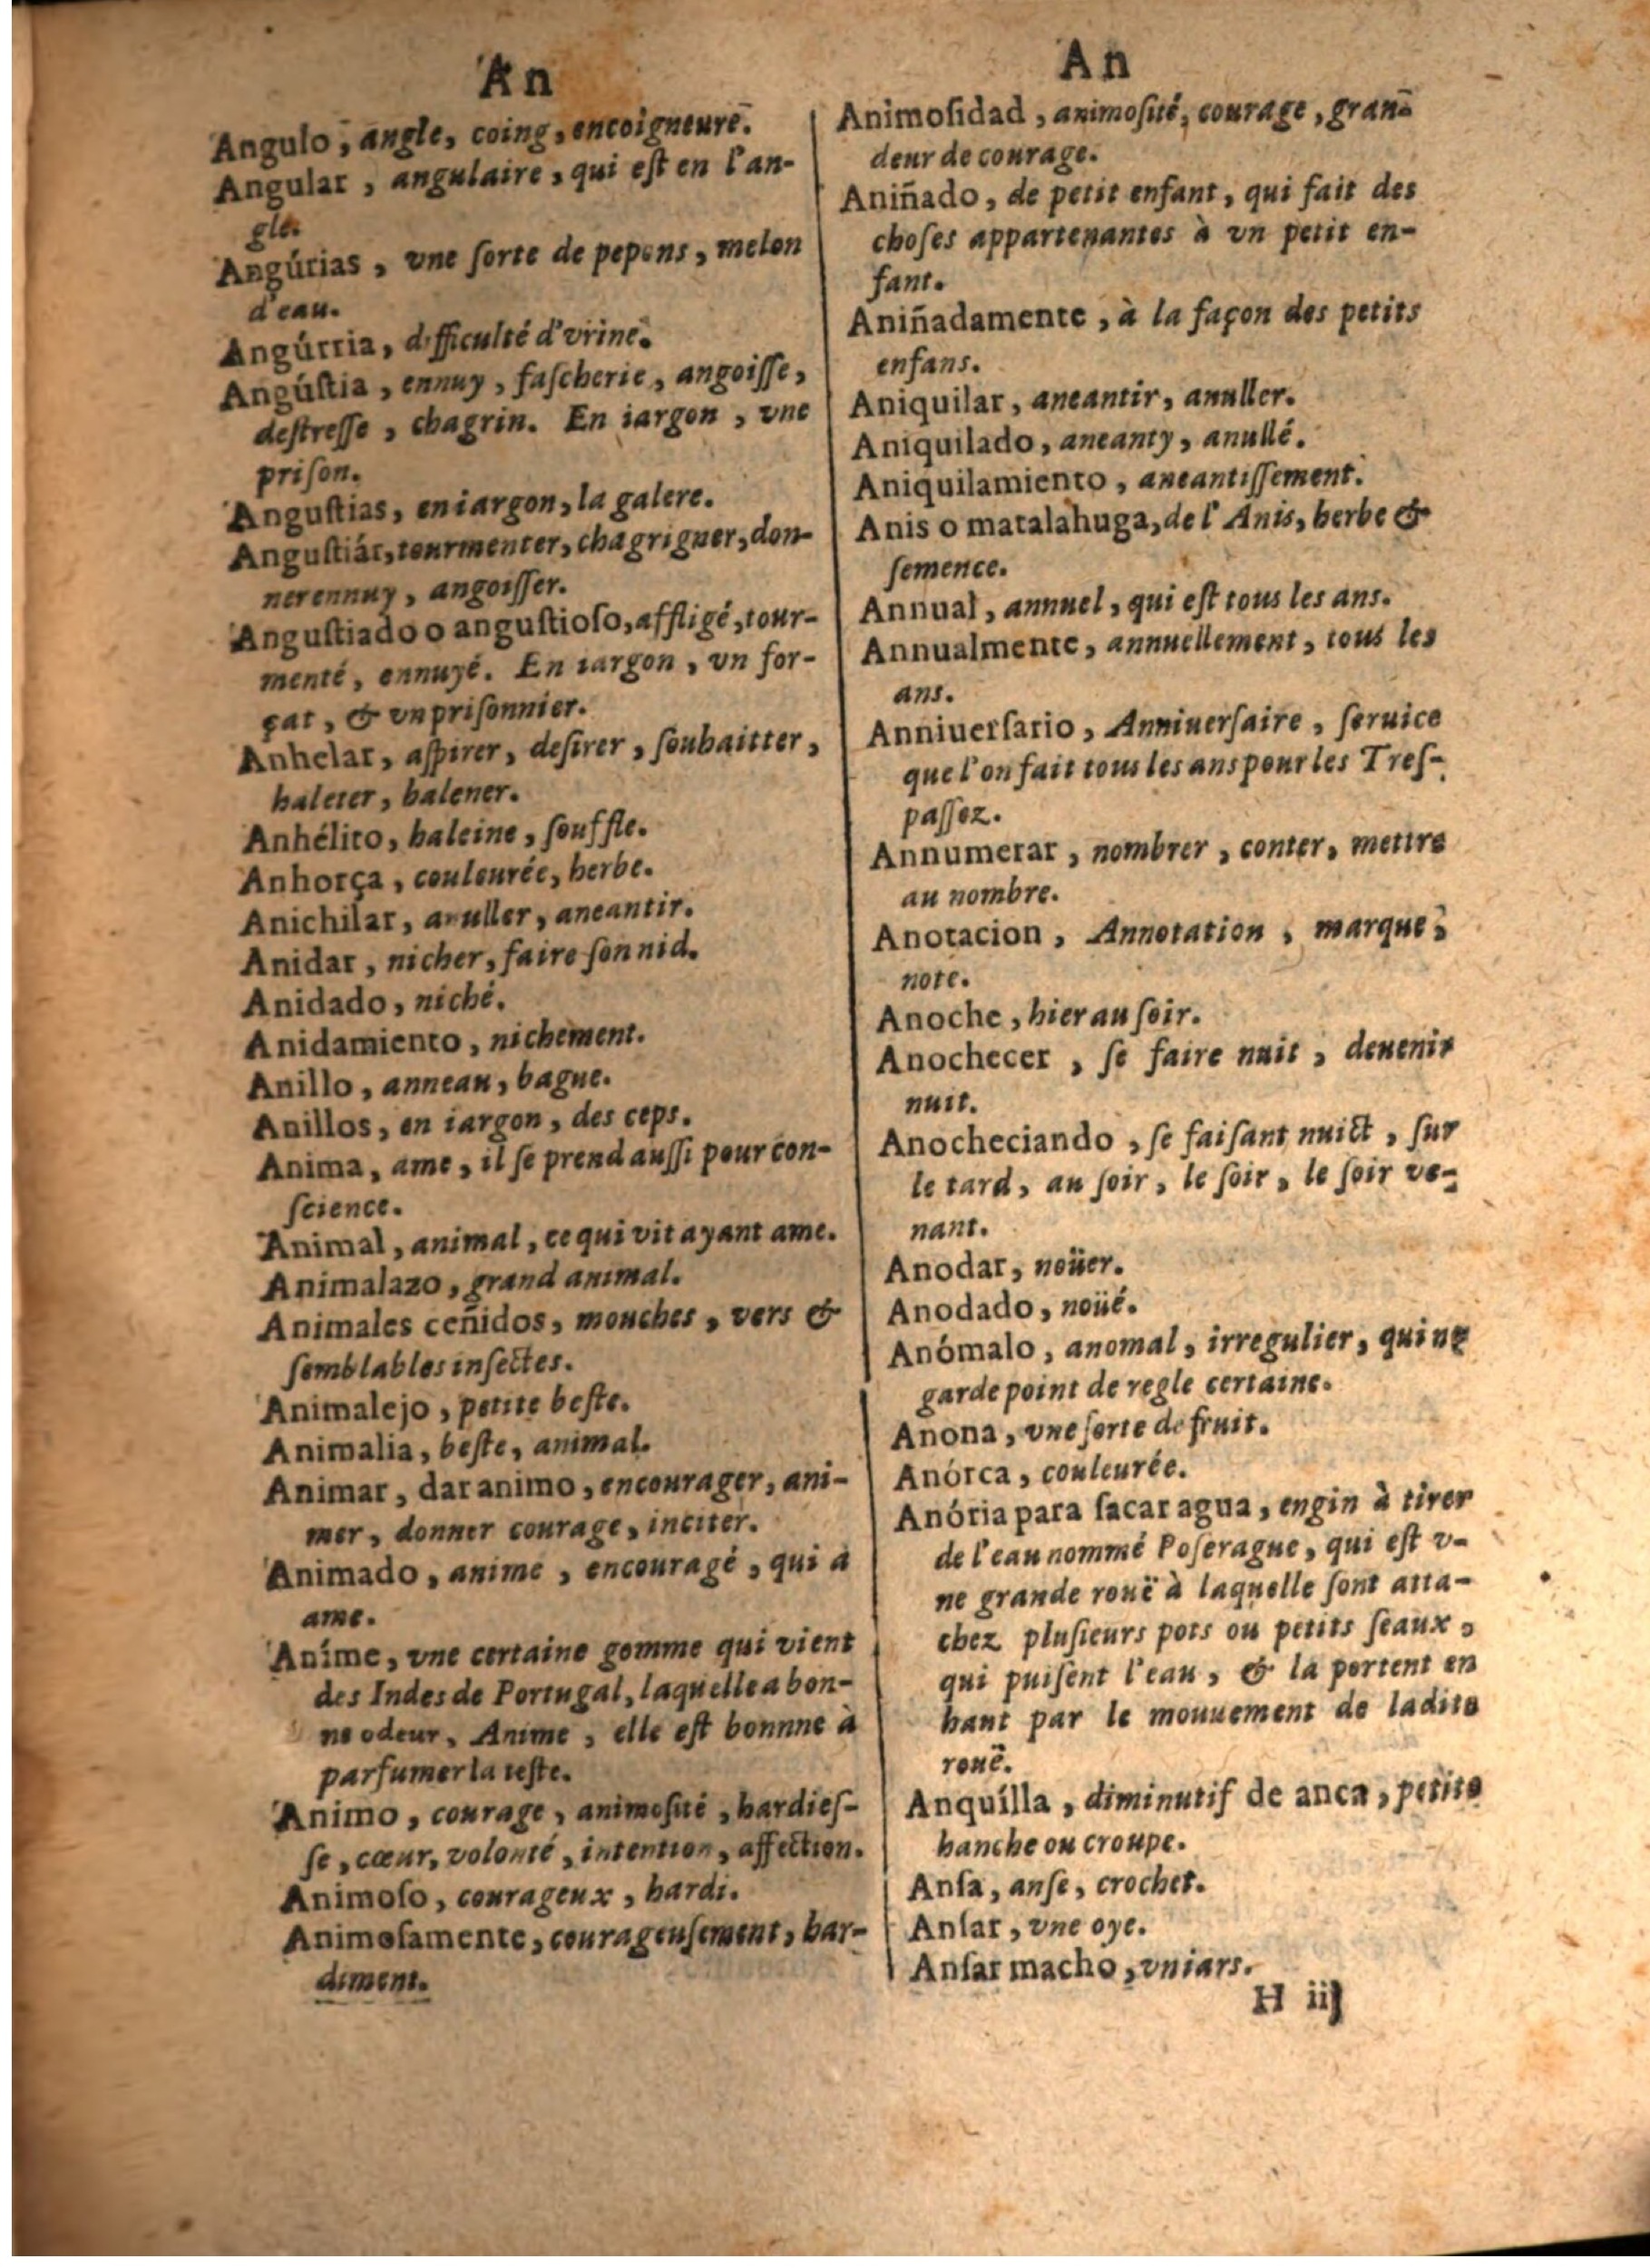 An
Angulo, angle, coing, encoigneure.
Angular, angulaire, qui eſt en l'an-
gle.
Angúrias, vne ſorte de pepons, melon
d'eau.
Angúrria, difficulté d'vrine.
Angúſtia, ennuy, faſcherie, angoiſſe,
deſtreſſe, chagrin. En iargon, vne
priſon.
Anguſtias, en iargon, la galere.
Anguſtiár, tourmenter, chagrigner, don-
ner ennuy, angoiſſer.
Anguſtiado o anguſtioſo, affligé, tour-
menté, ennuyé. En iargon, vn for-
çat, & vn priſonnier.
Anhelar, aſpirer, deſirer, ſouhaitter,
haleter, halener.
Anhélito, haleine, ſouffle.
Anhorça, couleurée, herbe.
Anichilar, anuller, aneantir.
Anidar, nicher, faire ſon nid.
Anidado, niché.
Anidamiento, nichement.
Anillo, anneau, bague.
Anillos, en iargon, des ceps.
Anima, ame, il ſe prend auſſi pour con-
ſcience.
Animal, animal, ce qui vit ayant ame.
Animalazo, grand animal.
Animales ceñidos, mouches, vers &
ſemblables inſectes.
Animalejo, petite beſte.
Animalia, beſte, animal.
Animar, dar animo, encourager, ani-
mer, donner courage, inciter.
Animado, anime, encouragé, qui a
ame.
Aníme, vne certaine gomme qui vient
des Indes de Portugal, laquelle a bon-
ne odeur, Anime, elle eſt bonnne à
parfumer la teſte.
Animo, courage, animoſité, hardieſ-
ſe, cœur, volonté, intention, affection.
Animoſo, courageux, hardi.
Animoſamente, courageuſement, har-
diment.
An
Animoſidad, animoſité, courage, gran-
deur de courage.
Aniñado, de petit enfant, qui fait des
choſes appartenantes à vn petit en-
fant.
Aniñadamente, à la façon des petits
enfans.
Aniquilar, aneantir, anuller.
Aniquilado, aneanty, anullé.
Aniquilamiento, aneantiſſement.
Anis o matalahuga, de l'Anis, herbe &
ſemence.
Annual, annuel, qui eſt tous les ans.
Annualmente, annuellement, tous les
ans.
Anniuerſario, Anniuerſaire, ſeruice
que l'on fait tous les ans pour les Treſ-
paſſez.
Annumerar, nombrer, conter, mettre
au nombre.
Anotacion, Annotation, marque,
note.
Anoche, hier au ſoir.
Anochecer, ſe faire nuit, deuenir
nuit.
Anocheciando, ſe faiſant nuict, ſur
le tard, au ſoir, le ſoir, le ſoir ve-
nant.
Anodar, noüer.
Anodado, noüé.
Anómalo, anomal, irregulier, qui ne
garde point de regle certaine.
Anona, vne ſorte de fruit.
Anórca, couleurée.
Anória para ſacar agua, engin à tirer
de l'eau nommé Poſerague, qui eſt v-
ne grande rouë à laquelle ſont atta-
chez pluſieurs pots ou petits ſeaux,
qui puiſent l'eau, & la portent en
haut par le mouuement de ladite
rouë.
Anquílla, diminutif de anca, petite
hanche ou croupe.
Anſa, anſe, crochet.
Anſar, vne oye.
Anſar macho, vn iars.
H iij